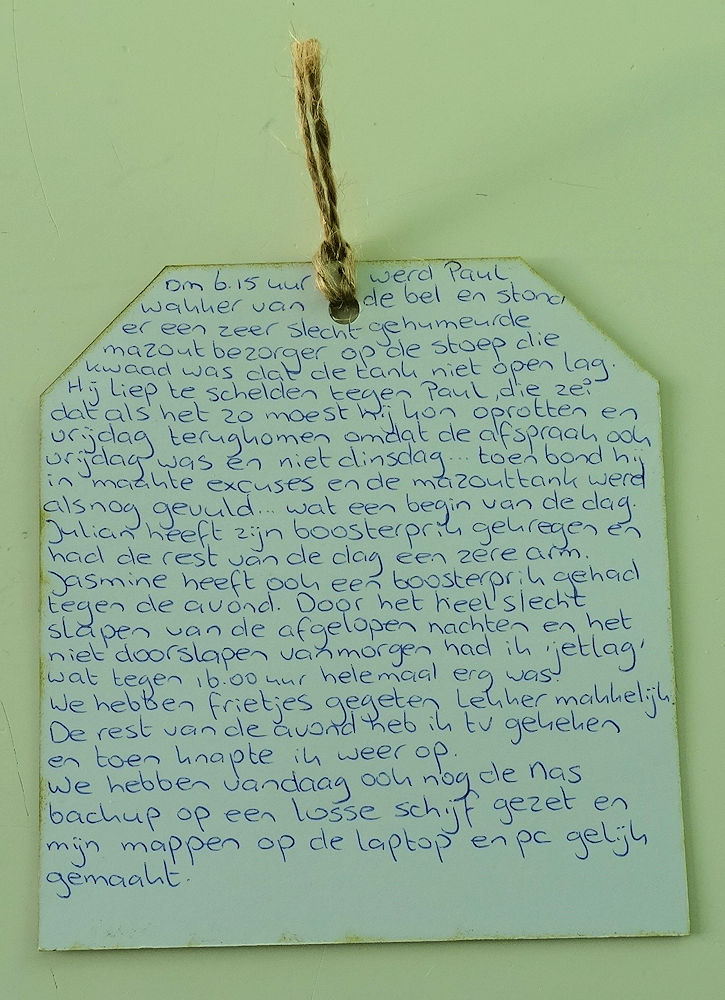 Om 6.15 uur werd Paul
wakker van de bel en stond
er een zeer slecht gehumeurde
mazoutbezorger op de stoep die
kwaad was dat de tank niet open lag.
Hij liep te schelden tegen Paul, die zei
dat als het zo moest hij kon oprotten en
vrijdag terugkomen omdat de afspraak ook
vrijdag was en niet dinsdag... toen bond hij
in maakte excuses en de mazouttank werd
alsnog gevuld... wat een begin van de dag.
Julian heeft zijn boosterprik gekregen en
had de rest van de dag een zere arm.
Jasmine heeft ook een boosterprik gehad
tegen de avond. Door het heel slecht
slapen van de afgelopen nachten en het
niet doorslapen vanmorgen had ik 'jetlag'
wat tegen 16.00 uur helemaal erg was.
We hebben frietjes gegeten lekker makkelijk.
De rest van de avond heb ik tv gekeken
en toen knapte ik weer op.
We hebben vandaag ook nog de nas
backup op een losse schijf gezet en
mijn mappen op de laptop en pc gelijk
gemaakt.